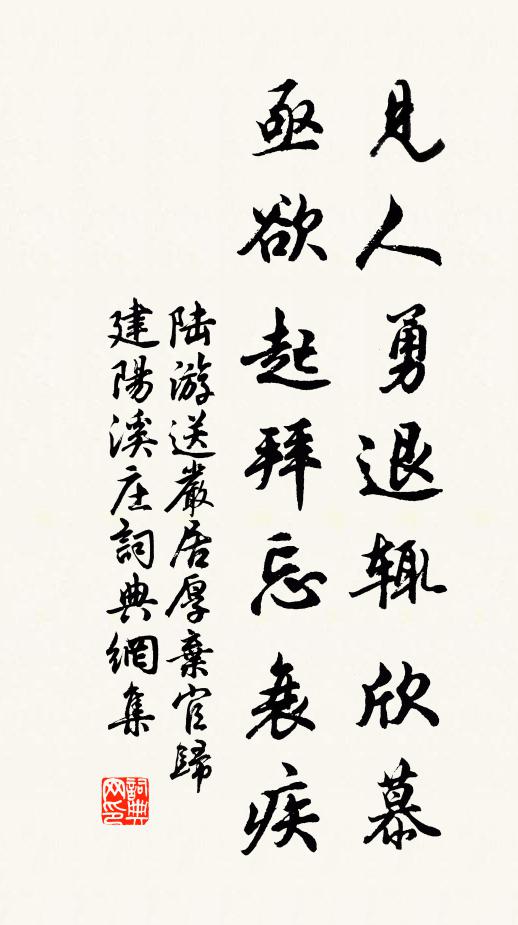 見人勇退輒欣慕
亟欲起拜忘衰疾
陸游送嚴居厚棄官歸
建陽溪庄詞典網集
詞典
网印